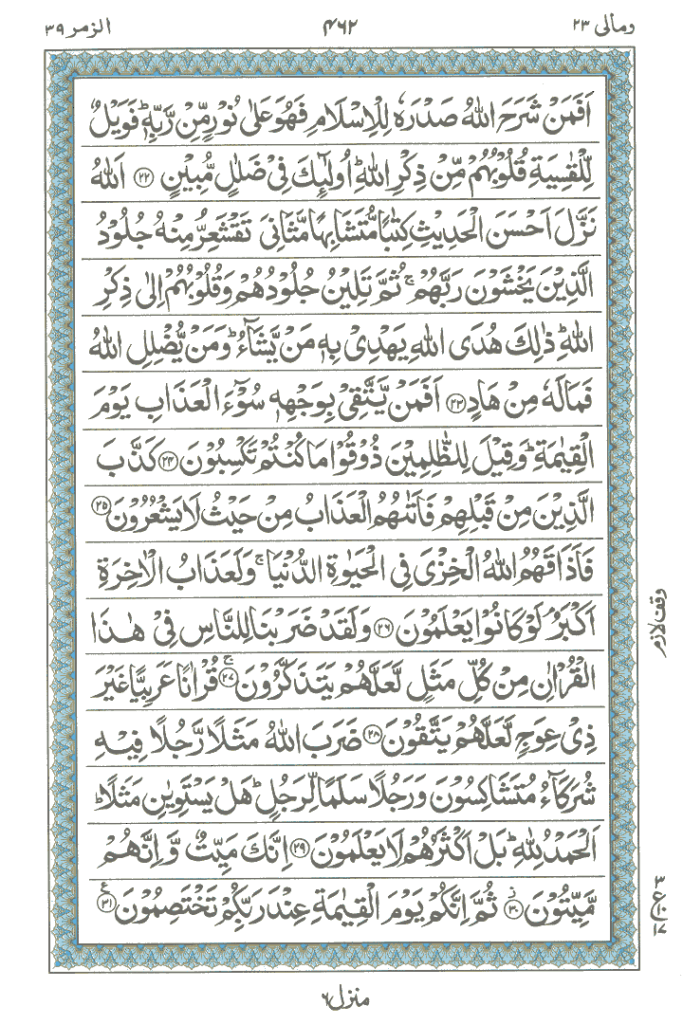 ومالى ٢٣
٤٦٢
الزمر ٣٩
اَفَمَنْ شَرَحَ اللّٰهُ صَدْرَهٗ لِلْاِسْلَامِ فَهُوَ عَلٰى نُوْرٍ مِّنْ رَّبِّهٖ ؕ فَوَيْلٌ
لِّلْقٰسِيَةِ قُلُوْبُهُمْ مِّنْ ذِكْرِ اللّٰهِ ؕ اُولٰٓئِكَ فِىْ ضَلٰلٍ مُّبِيْنٍ ﴿٢٢﴾ اَللّٰهُ
نَزَّلَ اَحْسَنَ الْحَدِيْثِ كِتٰبًا مُّتَشَابِهًا مَّثَانِىَ تَقْشَعِرُّ مِنْهُ جُلُوْدُ
الَّذِيْنَ يَخْشَوْنَ رَبَّهُمْ ۚ ثُمَّ تَلِيْنُ جُلُوْدُهُمْ وَقُلُوْبُهُمْ اِلٰى ذِكْرِ
اللّٰهِ ؕ ذٰلِكَ هُدَى اللّٰهِ يَهْدِىْ بِهٖ مَنْ يَّشَآءُ ؕ وَمَنْ يُّضْلِلِ اللّٰهُ
فَمَا لَهٗ مِنْ هَادٍ ﴿٢٣﴾ اَفَمَنْ يَّتَّقِىْ بِوَجْهِهٖ سُوْٓءَ الْعَذَابِ يَوْمَ
الْقِيٰمَةِ ؕ وَقِيْلَ لِلظّٰلِمِيْنَ ذُوْقُوْا مَا كُنْتُمْ تَكْسِبُوْنَ ﴿٢٤﴾ كَذَّبَ
الَّذِيْنَ مِنْ قَبْلِهِمْ فَاَتٰٮهُمُ الْعَذَابُ مِنْ حَيْثُ لَا يَشْعُرُوْنَ ﴿٢٥﴾
فَاَذَاقَهُمُ اللّٰهُ الْخِزْىَ فِى الْحَيٰوةِ الدُّنْيَا ۚ وَلَعَذَابُ الْاٰخِرَةِ
اَكْبَرُ ۘ لَوْ كَانُوْا يَعْلَمُوْنَ ﴿٢٦﴾ وَلَقَدْ ضَرَبْنَا لِلنَّاسِ فِىْ هٰذَا
وقف لازم
الْقُرْاٰنِ مِنْ كُلِّ مَثَلٍ لَّعَلَّهُمْ يَتَذَكَّرُوْنَ ۚ﴿٢٧﴾ قُرْاٰنًا عَرَبِيًّا غَيْرَ
ذِىْ عِوَجٍ لَّعَلَّهُمْ يَتَّقُوْنَ ﴿٢٨﴾ ضَرَبَ اللّٰهُ مَثَلًا رَّجُلًا فِيْهِ
شُرَكَآءُ مُتَشَاكِسُوْنَ وَرَجُلًا سَلَمًا لِّرَجُلٍ ؕ هَلْ يَسْتَوِيٰنِ مَثَلًا ؕ
اَلْحَمْدُ لِلّٰهِ ؕ بَلْ اَكْثَرُهُمْ لَا يَعْلَمُوْنَ ﴿٢٩﴾ اِنَّكَ مَيِّتٌ وَّ اِنَّهُمْ
مَّيِّتُوْنَ ؗ﴿٣٠﴾ ثُمَّ اِنَّكُمْ يَوْمَ الْقِيٰمَةِ عِنْدَ رَبِّكُمْ تَخْتَصِمُوْنَ ۧ﴿٣١﴾
منزل ٦